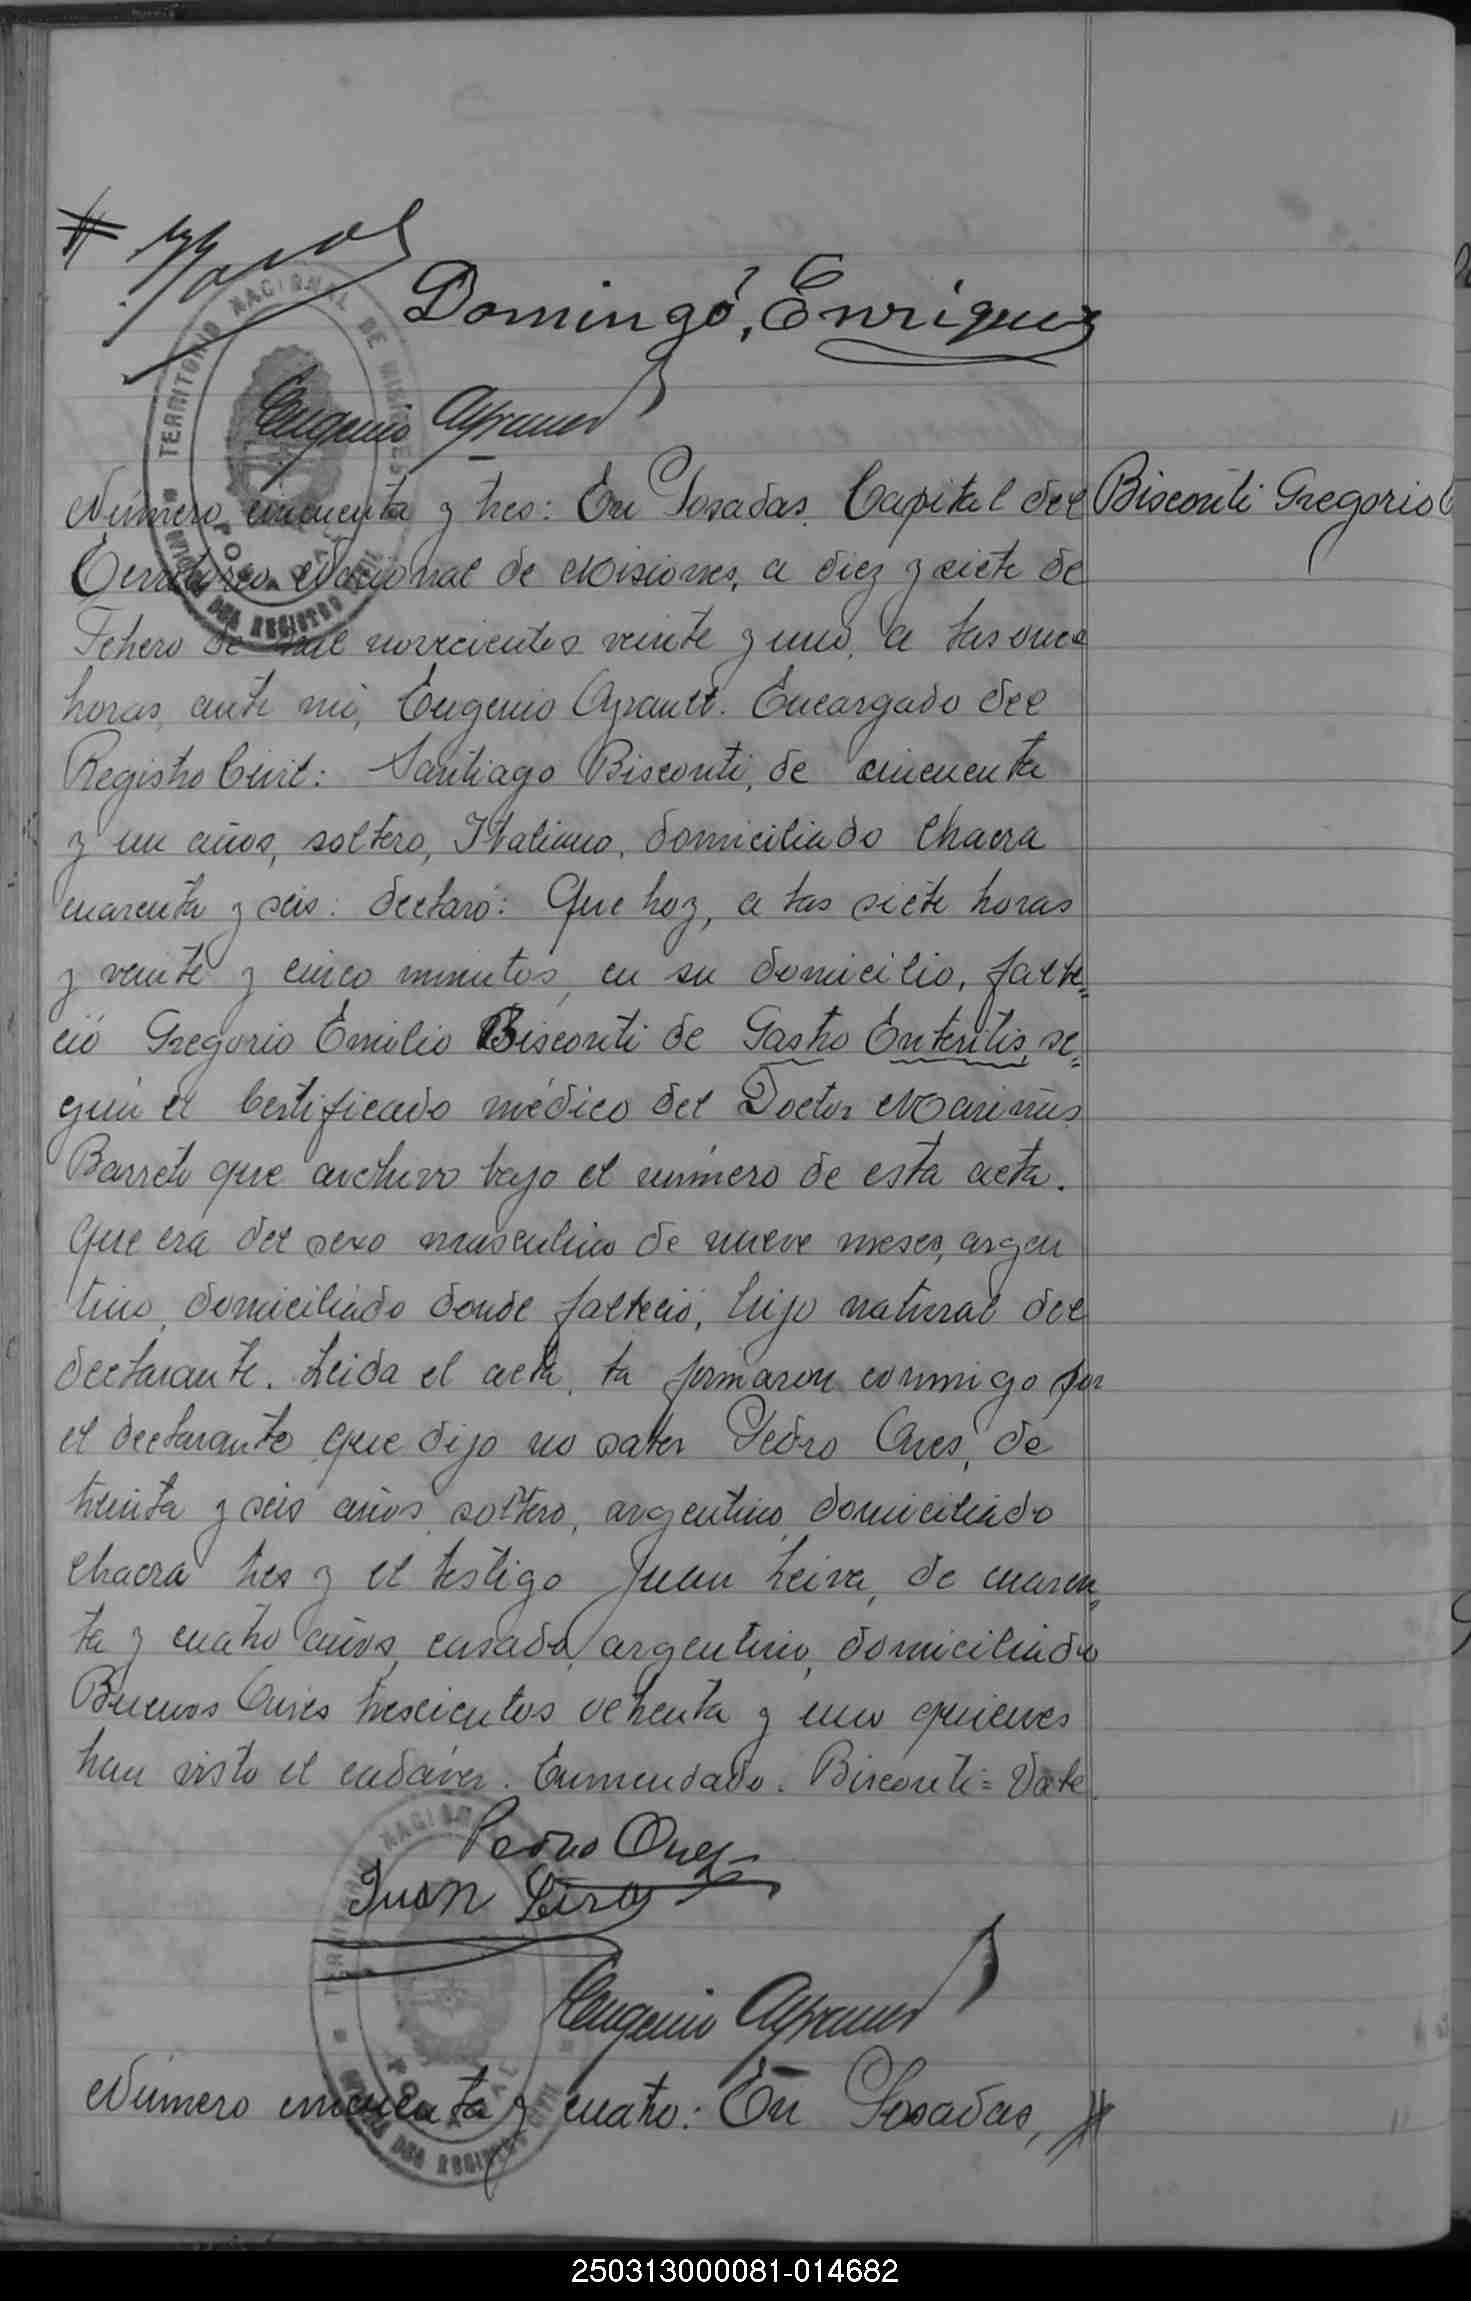 Domingo, Enriquez
TERRITORIO NACIONAL DE MISIONES
Eugenio Ayrault
Número cincuenta y tres: En Posadas, Capital del
Bisconti Gregorio
Territorio Nacional de Misiones, a diez y siete de
Febrero de mil novecientos veinte y uno, a las once
horas, ante mi, Eugenio Ayrault. Encargado del
Registro Civil: Santiago Bisconti, de cincuenta
y un años, soltero, Italiano, domiciliado Chacra
cuarenta y seis: declaró: Que hoy, a las siete horas
y veinte y cinco minutos, en su domicilio, falle=
ció Gregorio Emilio Bisconti de Gastro Enteritis, se=
gún el Certificado médico del Doctor
Barreto que archivo bajo el número de esta acta.
Que era del sexo masculino de nueve meses, argen
tino, domiciliado donde falleció, hijo natural del
declarante. Leida el acta, la firmaron conmigo por
el declarante que dijo no saber Pedro Ores, de
treinta y seis años, soltero, argentino, domiciliado
Chacra tres y el testigo Juan Leiva, de cuaren=
ta y cuatro años, casado, argentino, domiciliado
Buenos Aires trescientos ochenta y uno quienes
han visto el cadáver. Enmendado. Bisconti = Vale.
Pedro Ores
Juan Leiva
Eugenio Ayrault
Número cincuenta y cuatro: En Posadas,
250313000081-014682